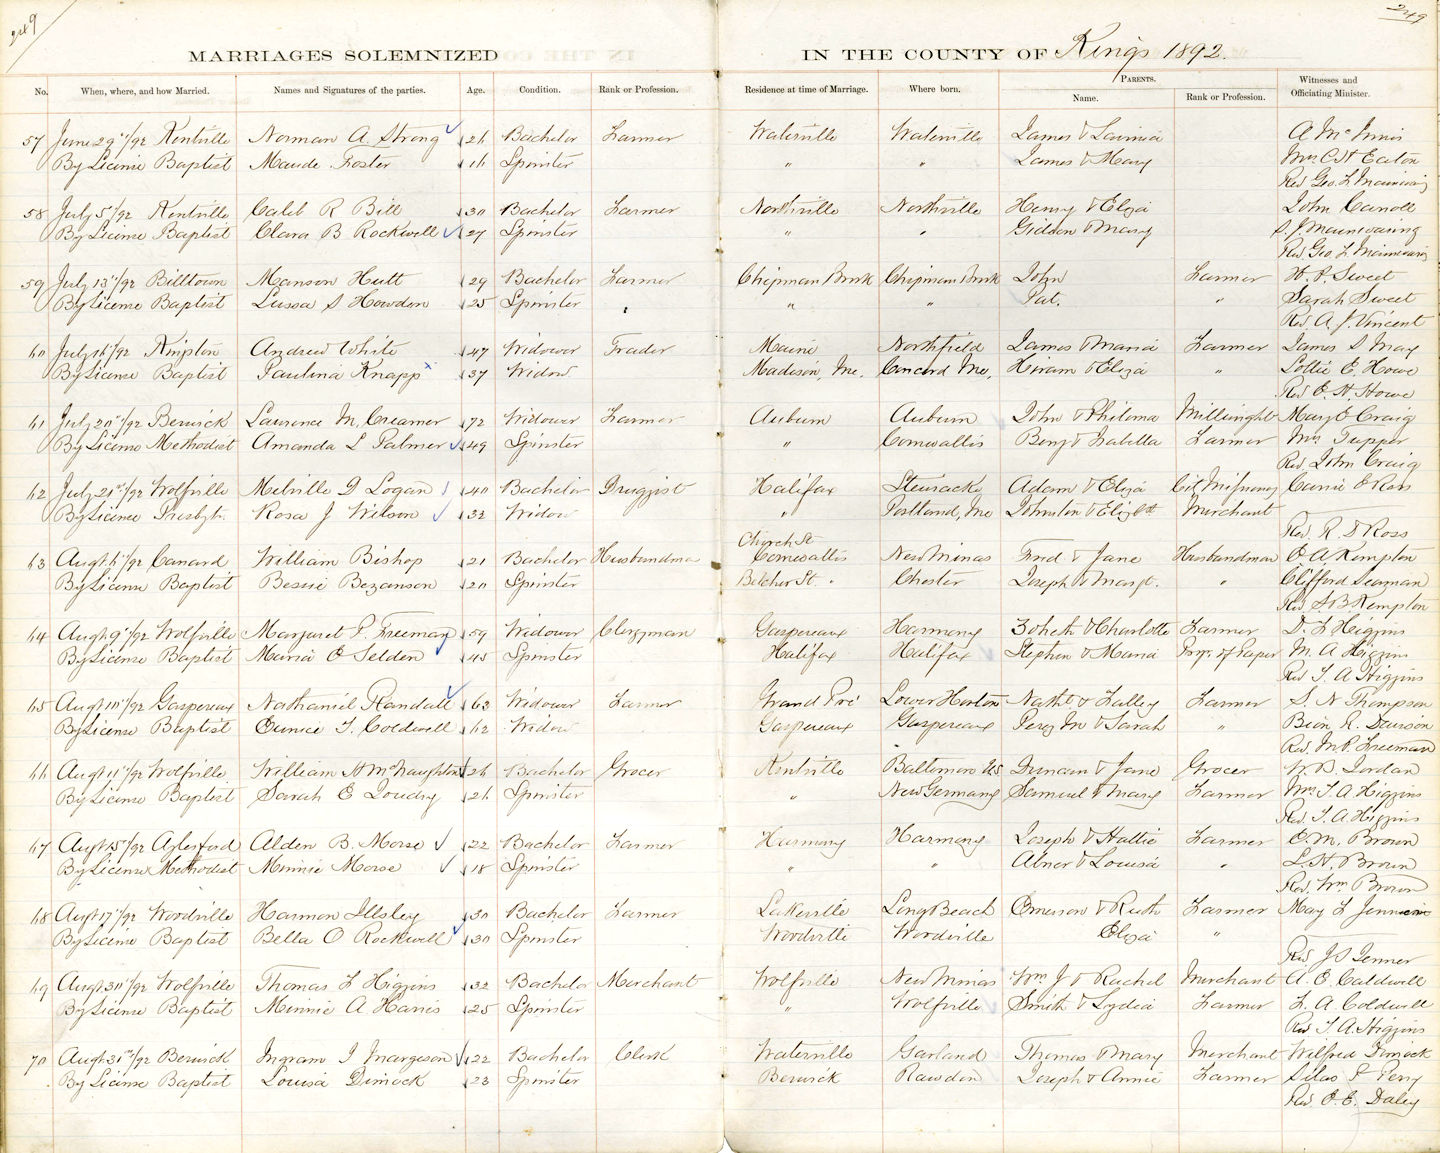 249
249
MARRIAGES SOLEMNIZED IN THE COUNTY OF Kings 1892.
No. When, where, and how Married. Names and Signatures of the parties. Age. Condition. Rank or Profession. Residence at time of Marriage. Where born. PARENTS. Name. Rank or Profession. Witnesses and Officiating Minister.
57 June 29"/92 Kentville Norman A. Strong 26 Bachelor Farmer Waterville Waterville James & Lavinia A McInnis
By License Baptist Maude Foster 16 Spinster " " James & Mary Mrs C H Eaton
Rev Geo. L Mainwaring
58 July 5"/92 Kentville Caleb R Bill 30 Bachelor Farmer Northville Northville Henry & Eliza John Carroll
By License Baptist Clara B Rockwell 27 Spinster " " Gideon & Mary S. J. Mainwaring
Rev Geo. L Mainwaring
59 July 13"/92 Billtown Manson Hutt 29 Bachelor Farmer Chipman Brook Chipman Brook John Farmer H. P. Sweet
By License Baptist S Howden 25 Spinster " " " Pat. " Sarah Sweet
Rev A. J. Vincent
60 July 16"/92 Andrew White 47 Widower Trader Maine Northfield James & Maria Farmer James S May
By License Baptist Paulina Knapp 37 Widow Madison, Me. Concord Me. Hiram & Eliza " Lottie E. Howe
Rev E. H. Howe
61 July 20"/92 Berwick Laurence M. Creamer 72 Widower Farmer Auburn Auburn John & Philema Millwright Mary E Craig
By License Methodist Amanda L Palmer 49 Spinster " Cornwallis Benj & Isabella Farmer Mrs Tupper
Rev. John Craig
62 July 21st/92 Wolfville Melville D Logan 40 Bachelor Druggist Halifax Stewiacke Adam & Eliza Carrie E Ross
By License Presbytn. Rosa J Wilson 32 Widow " Portland, Me Johnston & Elizbth Merchant
Rev. R. D Ross
Church St
63 Augt 6"/92 Canard William Bishop 21 Bachelor Husbandman Cornwallis New Minas Fred & Jane Husbandman O. A. Kempton
By License Baptist Bessie Bezanson 20 Spinster Belcher St. " Chester Joseph & Margt. " Clifford Seaman
Rev S B Kempton
64 Augt 9"/92 Wolfville Margaret P. Freeman 59 Widower Clergyman Gaspereaux Harmony Zoheth & Charlotte Farmer D. F Higgins
By License Baptist Maria E Selden 45 Spinster Halifax Halifax Stephen & Maria Mfr. of Paper M. A Higgins
Rev T. A Higgins
65 Augt 10"/92 Gaspereau Nathaniel Randall 63 Widower Farmer Grand Pré Lower Horton Nathl & Lalley Farmer S. N Thompson
By License Baptist Eunice T. Coldwell 62 Widow Gaspereaux Gaspereaux Perez M & Sarah " R. Davison
Rev. M. P. Freeman
66 Augt 11"/92 Wolfville William H McNaughton 26 Bachelor Grocer Kentville Baltimore US Duncan & Jane Grocer W. D. Jordan
By License Baptist Sarah E Lowdry 26 Spinster " New Germany Samuel & Mary Farmer Mrs T. A Higgins
Rev. T. A. Higgins
67 Augt 15/92 Aylesford Alden B. Morse 22 Bachelor Farmer Harmony Harmony Joseph & Hattie Farmer E. M. Brown
By License Methodist Minnie Morse 18 Spinster " " Abner & Louisa " L. H. Brown
Rev. Wm Brown
68 Augt 17"/92 Woodville Harmon Illsley 30 Bachelor Farmer Lakeville Long Beach Emerson & Ruth Farmer May L
By License Baptist Bella O Rockwell 30 Spinster Woodville Woodville Eliza "
Rev J S Jenner
69 Augt 30"/92 Wolfville Thomas L Higgins 32 Bachelor Merchant Wolfville New Minas Wm. J & Rachel Merchant A. E. Caldwell
By License Baptist Minnie A. Harris 25 Spinster " Wolfville Smith & Lydia Farmer L. A. Coldwell
Rev T. A. Higgins
70 Augt 31st/92 Berwick Ingram I Margeson 22 Bachelor Clerk Waterville Garland Thomas & Mary Merchant Wilfred Dimock
By License Baptist Louisa Dimock 23 Spinster Berwick Rawdon Joseph & Annie Farmer Silas P Perry
Rev. O. E. Daley